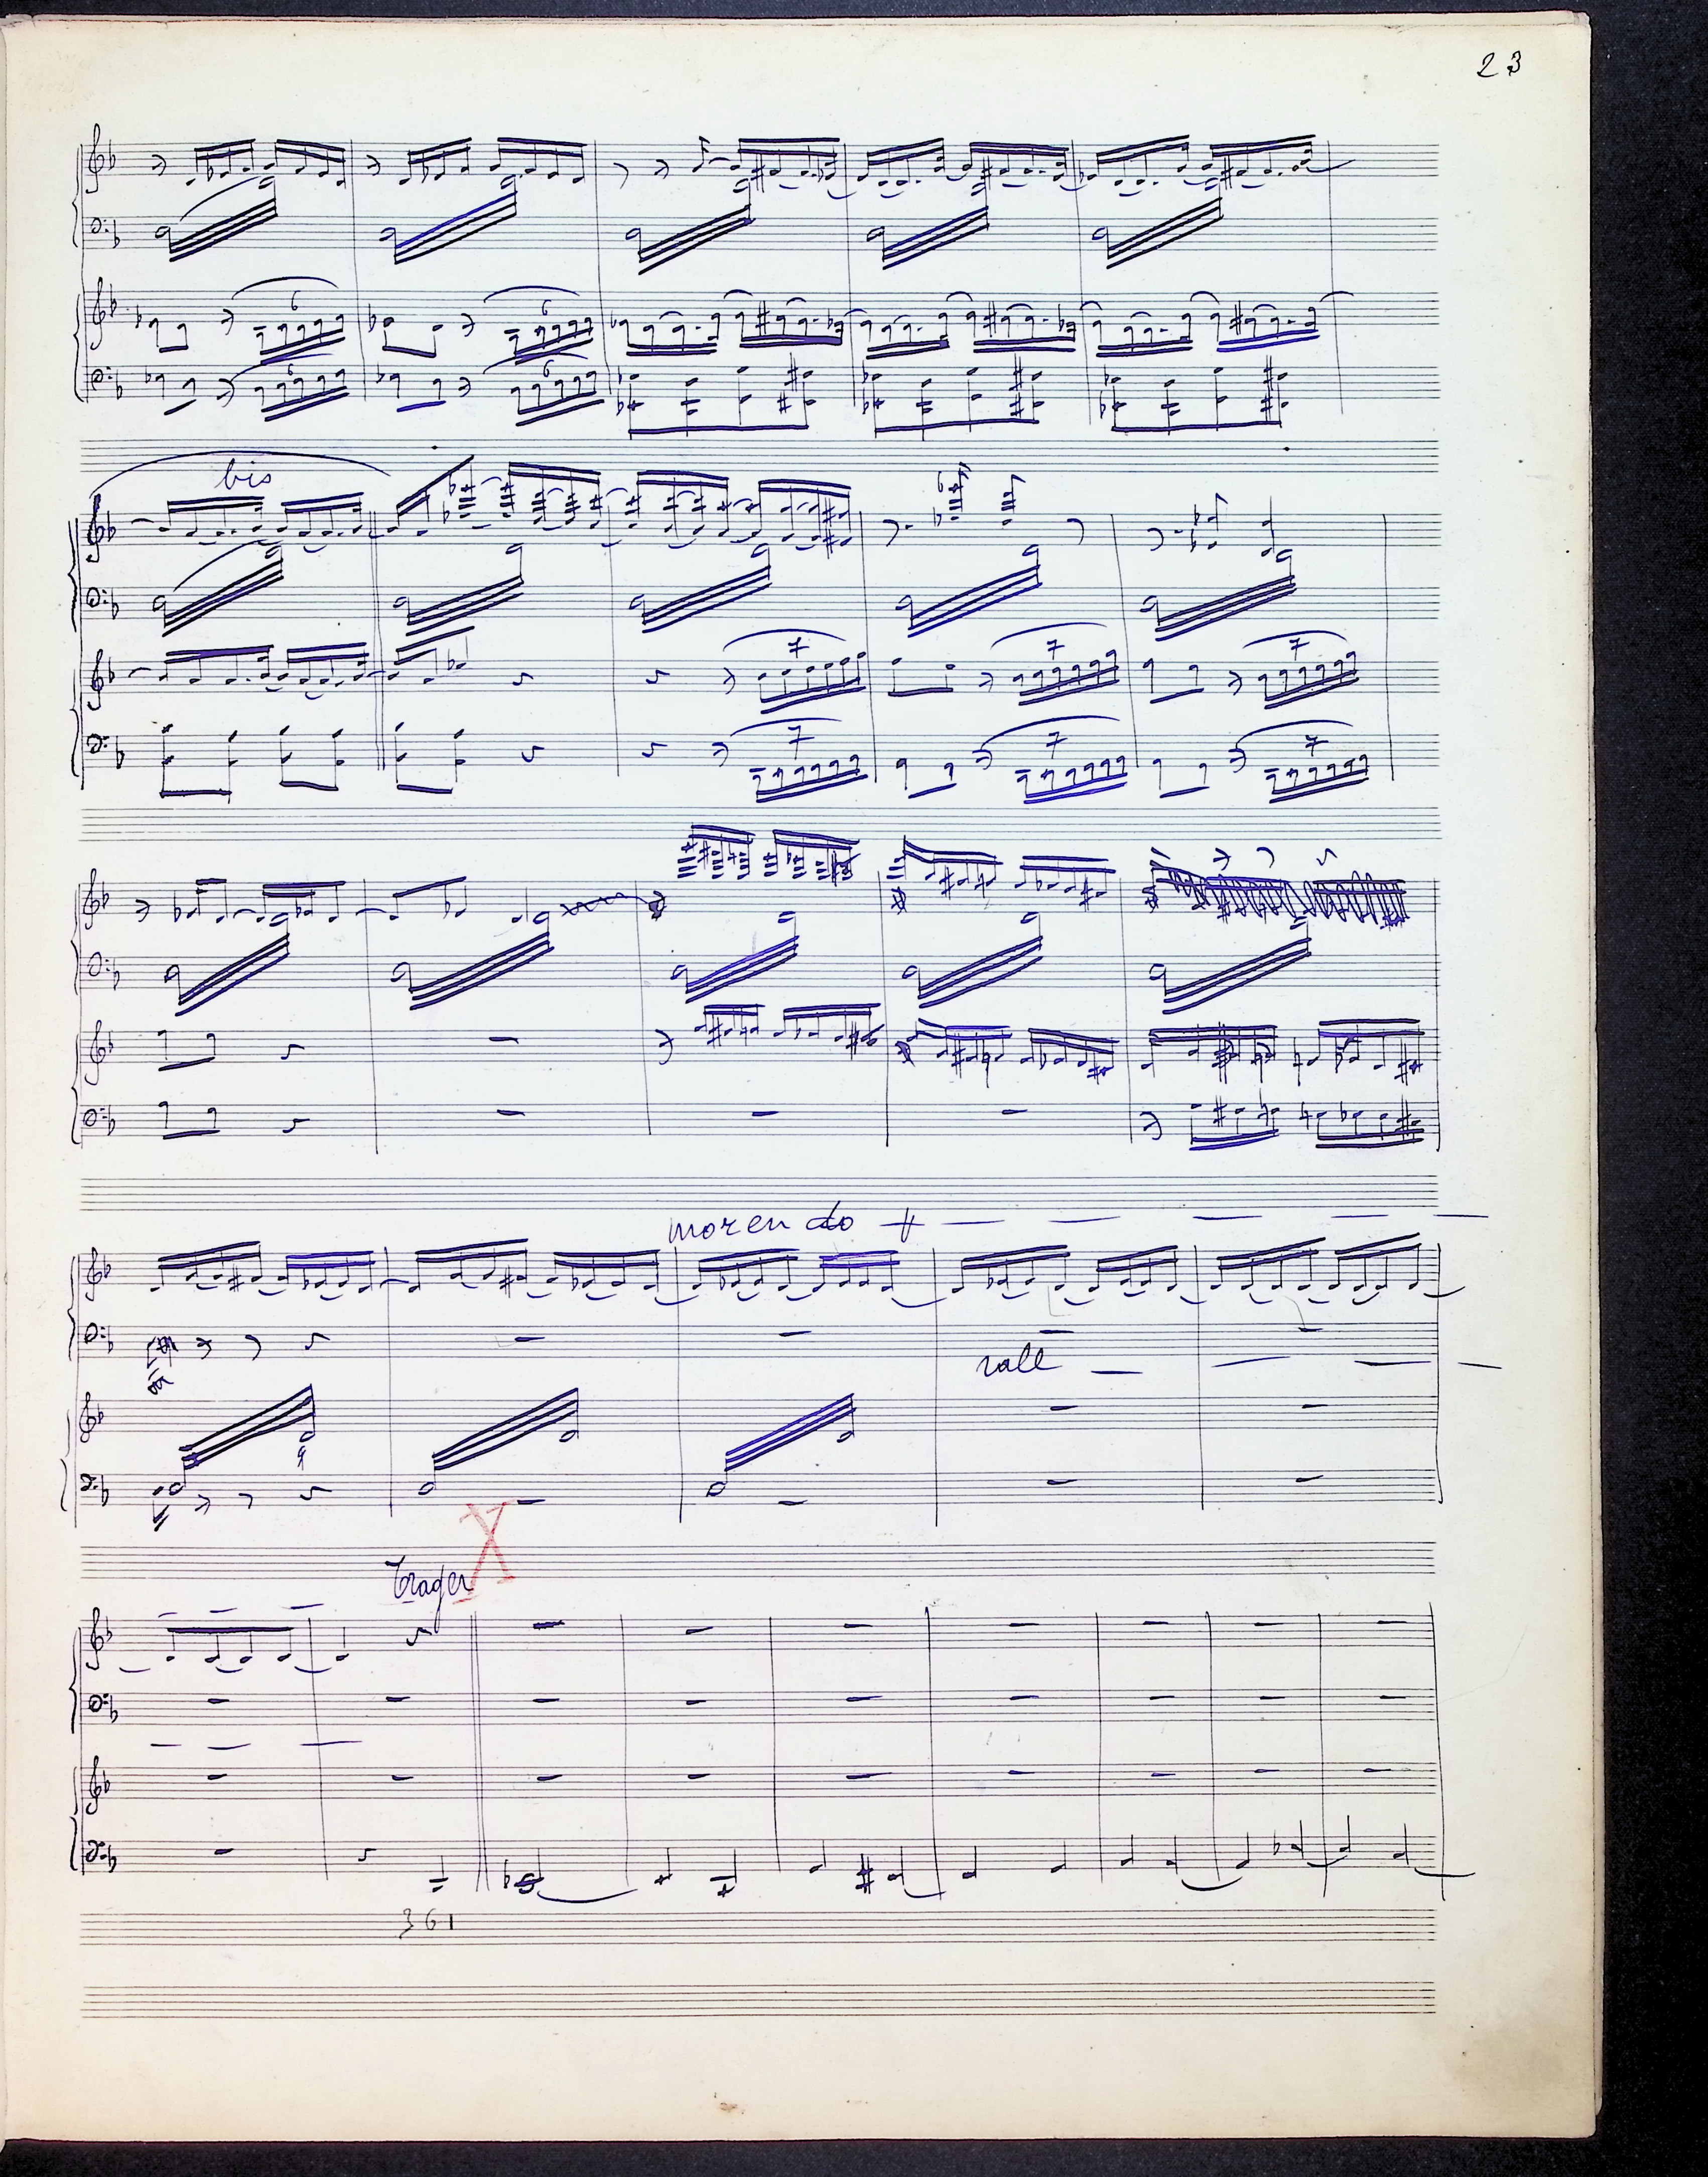 23
6 6
6 6
bis
7 7 7
7 7 7
morendo
rall
X
361